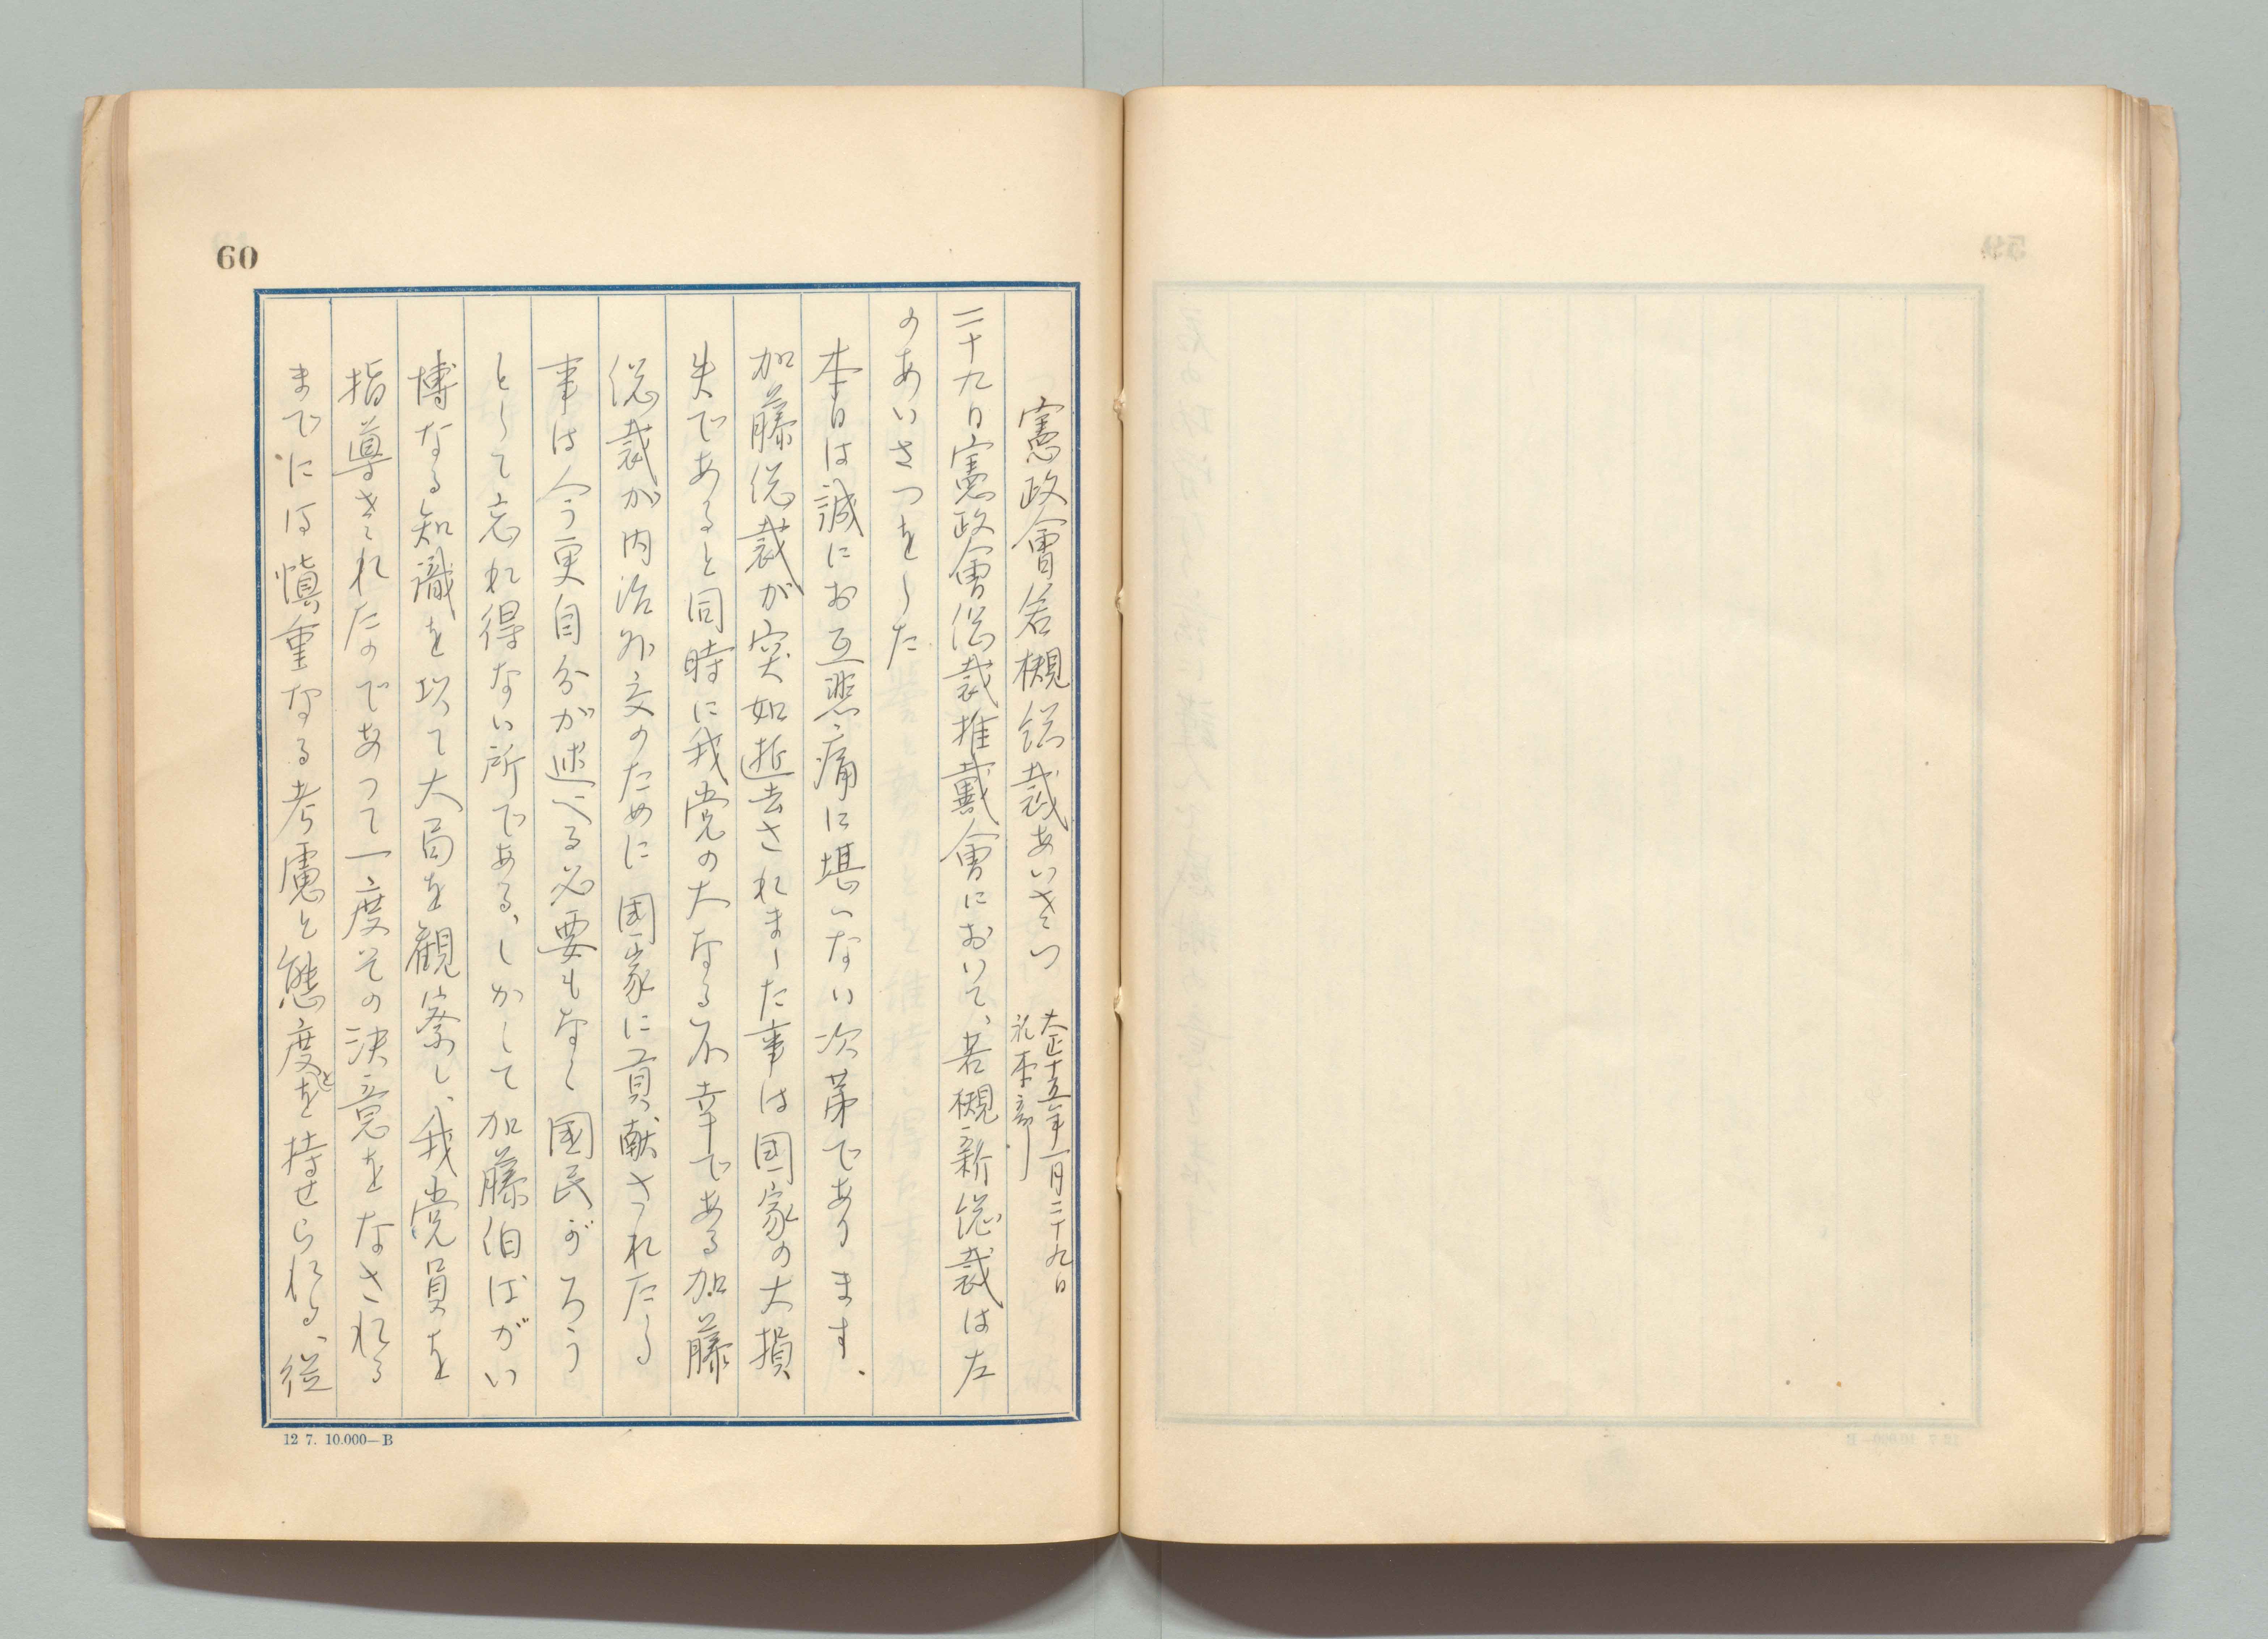 60
憲政會若槻総裁あいさつ 大正十五年一月二十九日
二十九日憲政會総裁推戴會において、若槻新総裁は左
のあいさつをした
本日は誠にお互悲痛に堪へない次第であります、
加藤総裁が突如逝去されました事は国家の大損
失であると同時に我党の大なる不幸である加藤
総裁が内治外交のために国家に貢献されたる
事は今更自分が述べる必要もなく国民がろう
として忘れ得ない所である、しかして加藤伯はがい
博なる知識を以て大局を観察し、我党員を
指導されたのであつて一度その決意をなされる
までには慎重なる考慮と態度とを持せられる、従
12 7. 10.000—B